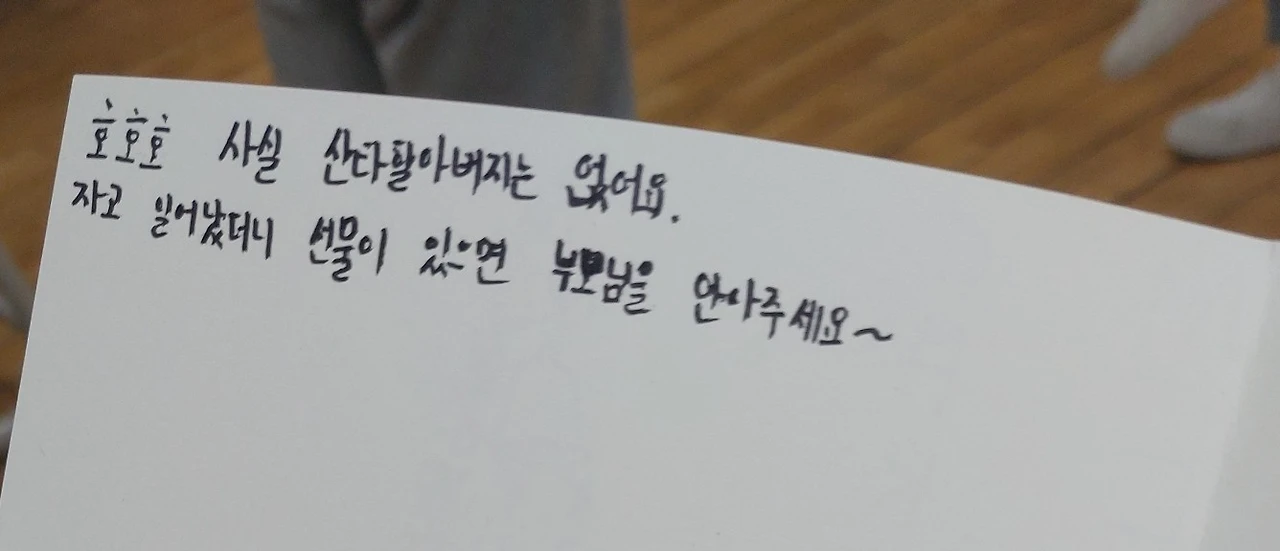 호호호 사실 산타할아버지는 없어요.
자고 일어났더니 선물이 있으면 부모님을 안아주세요~